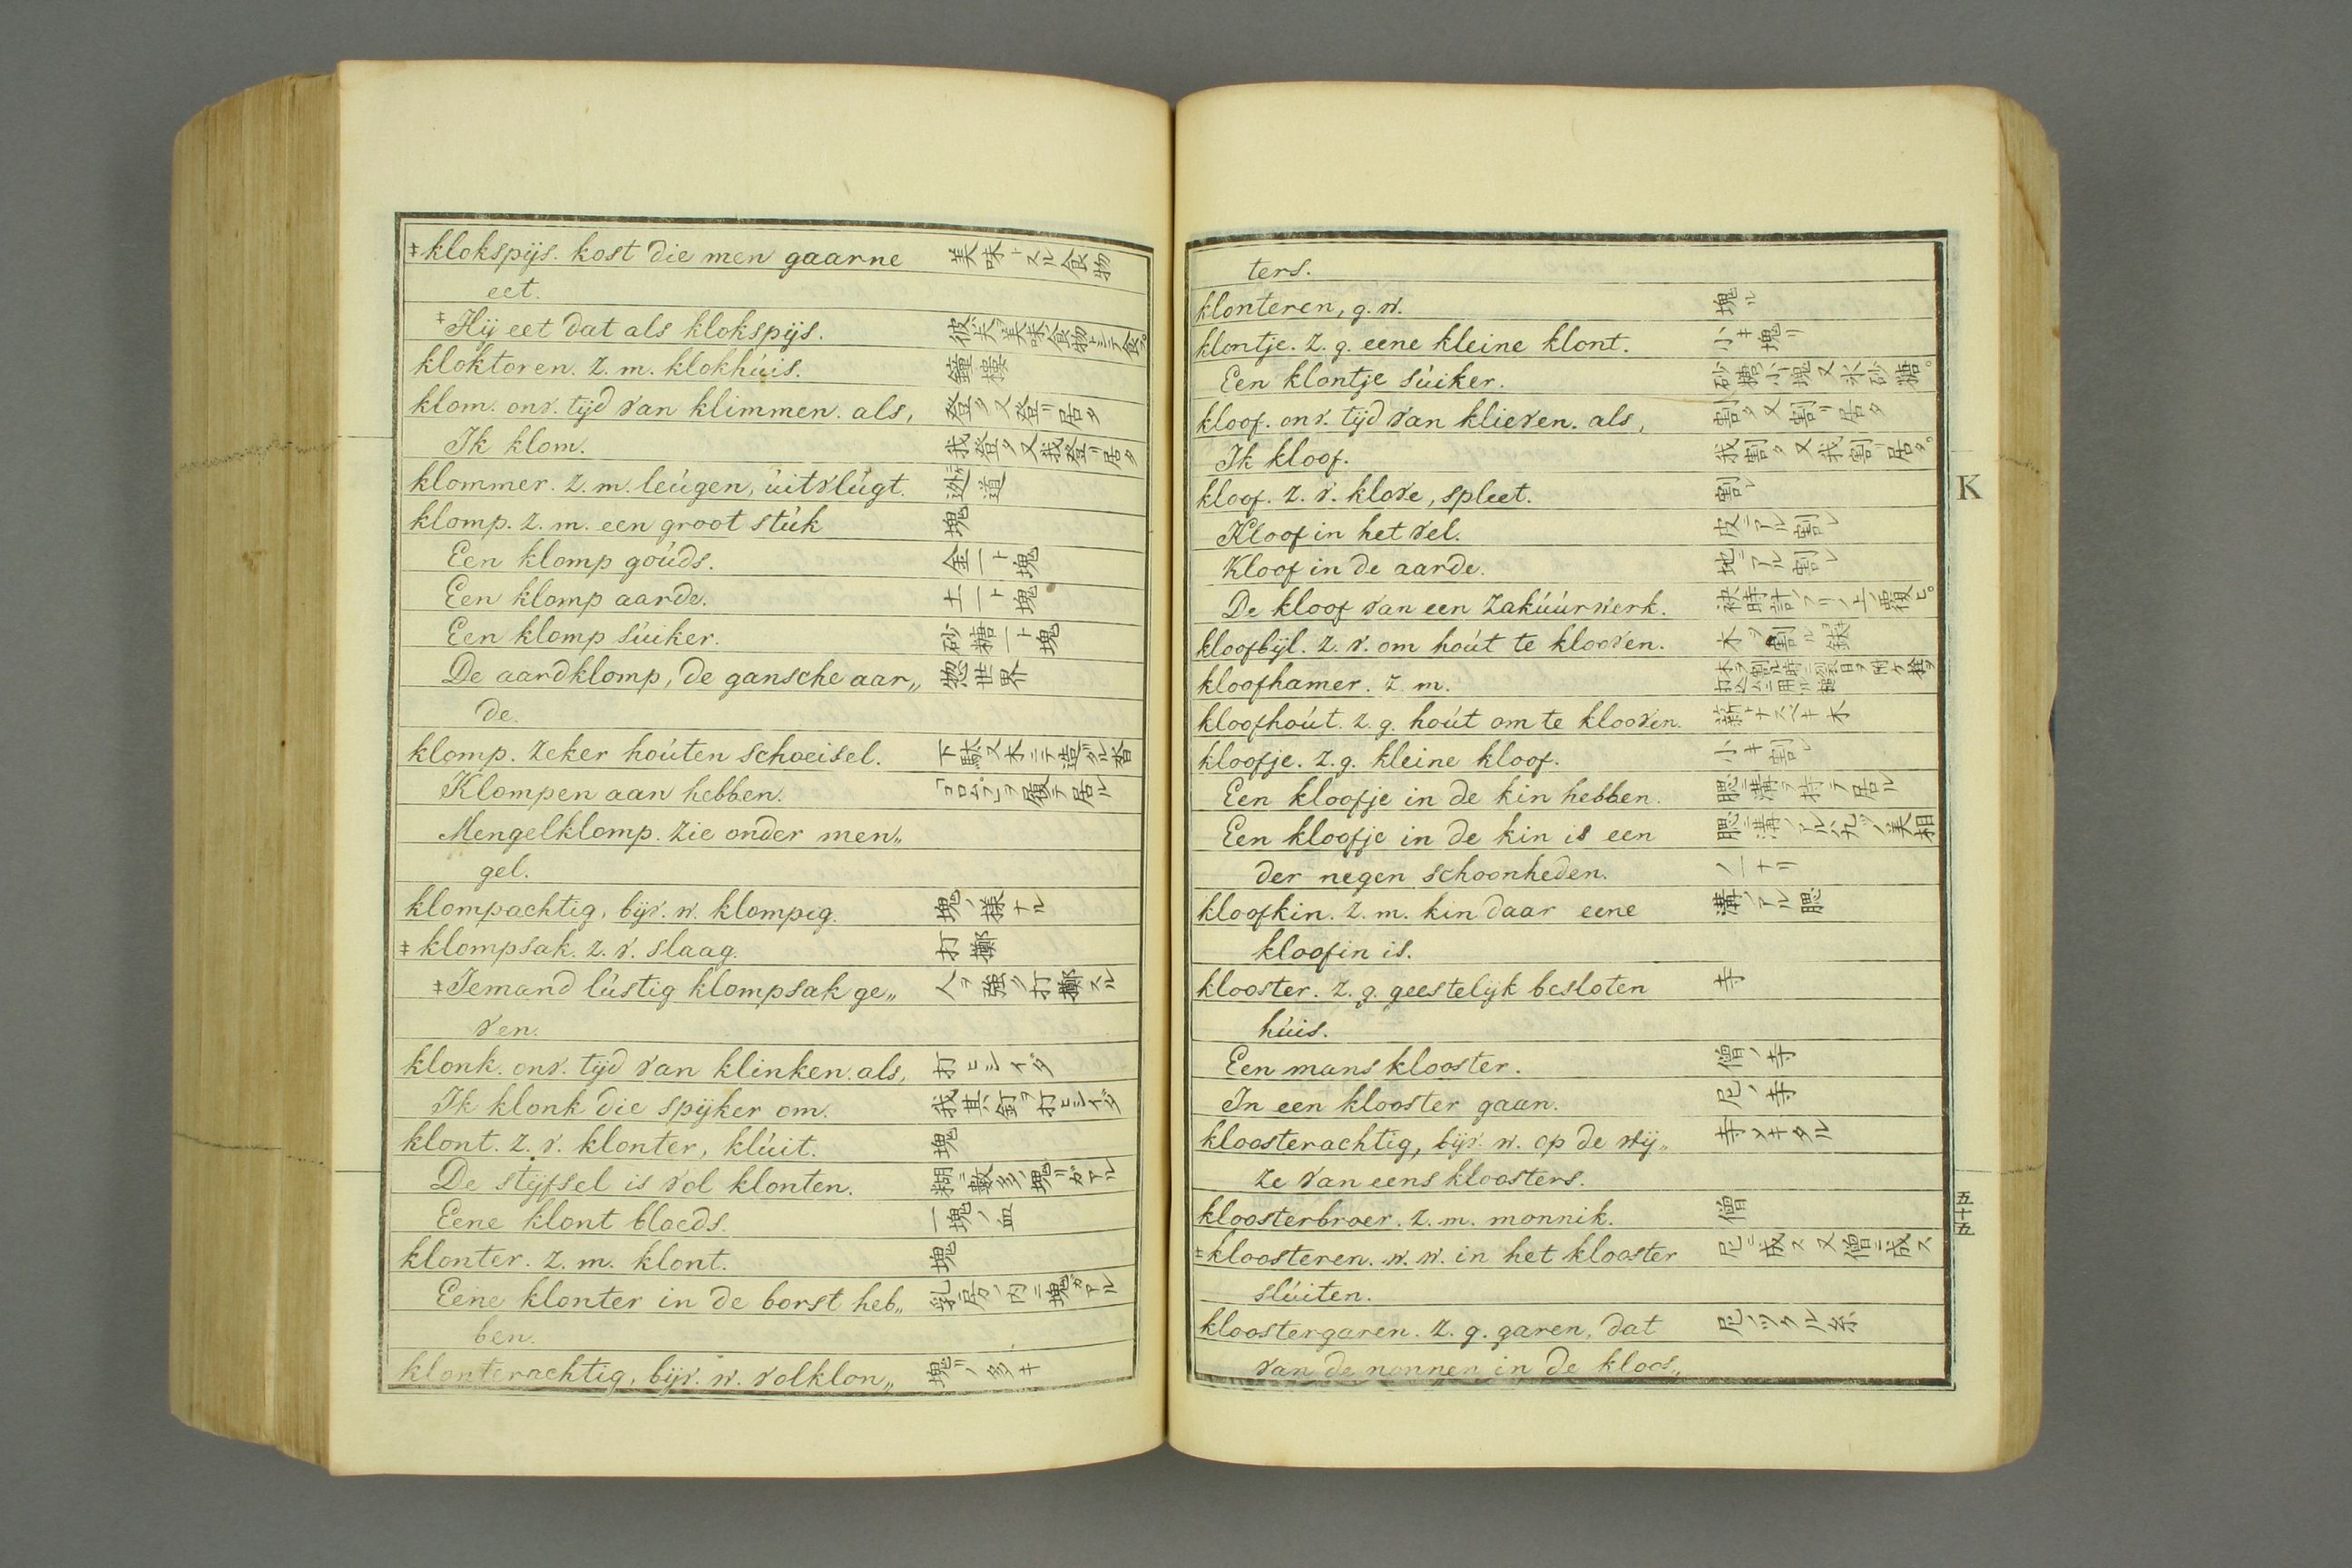 ‡klokspijs. kost die men gaarne 美味トスル食物
eet.
‡Hij eet dat als klokspijs.
kloktoren. z. m. klokhúis. 鐘樓
klom. onv. tijd van klimmen. als, 登タ又登リ居タ
Ik klom. 我登タ又我登リ居タ
klommer. z. m. leúgen, úitvlúgt.
klomp. z. m. een groot stúk 塊
Een klomp goúds. 金一ト塊
Een klomp aarde. 土一ト塊
Een klomp súiker. 砂糖一ト塊
De aardklomp, de gansche aar„ 惣世界
de.
klomp. zeker hoúten schoeisel. 下駄又木ニテ造タル沓
Klompen aan hebben. 「コロムプ」ヲ履テ居ル
Mengelklomp. zie onder men„
gel.
klompachtig, bijv. w. klompig. 塊ノ様ナル
‡klompsak. z. v. slaag. 打擲
‡Iemand lústig klompsak ge„ 人ヲ強ク打擲スル
ven.
klonk. onv. tijd van klinken. als, 打ヒシイダ
Ik klonk die spijker om. 我其釘ヲ打ヒシイダ
klont. z. v. klonter, klúit. 塊
De stijfsel is vol klonten. 糊ニ數多ノ塊リガアル
Eene klont bloeds. 一塊ノ血
klonter. z. m. klont. 塊
Eene klonter in de borst heb„ 乳房ノ内ニ塊ガアル
ben.
klonterachtig, bijv. w. volklon„ 塊リノ多キ
ters.
klonteren, g. w. 塊ル
klontje. z. g. eene kleine klont. 小キ塊リ
Een klontje súiker. 砂糖ノ小塊又氷砂糖。
kloof. onv. tijd van klieven. als, 割タ又割リ居タ
Ik kloof. 我割タ又我割リ居タ。
kloof. z. v. klove, spleet. 割レ
Kloof in het vel. 皮ニアル割レ
Kloof in de aarde. 地ニアル割レ
De kloof van een zakúúrwerk.
kloofbijl. z. v. om hoút te klooven. 木ヲ割ル
kloofhamer. z. m.
kloofhoút. z. g. hoút om te klooven. 薪トナスベキ木
kloofje. z. g. kleine kloof. 小キ割レ
Een kloofje in de kin hebben. 腮ニ溝ヲ持テ居ル
Een kloofje in de kin is een 腮ニ溝ノアルハ九ツノ美相
der negen schoonheden. ノ一ナリ
kloofkin. z. m. kin daar eene 溝ノアル腮
kloofin is.
klooster. z. g. geestelijk besloten 寺
húis.
Een mans klooster. 僧ノ寺
In een klooster gaan. 尼ノ寺
kloosterachtig, bijv. w. op de wij„ 寺メキタル
ze van eens kloosters.
kloosterbroer. z. m. monnik. 僧
‡kloosteren. w. w. in het klooster 尼ニ成ス又僧ニ成ス
slúiten.
kloostergaren. z. g. garen, dat 尼ノツクル糸
van de nonnen in de kloos„
K
五十五